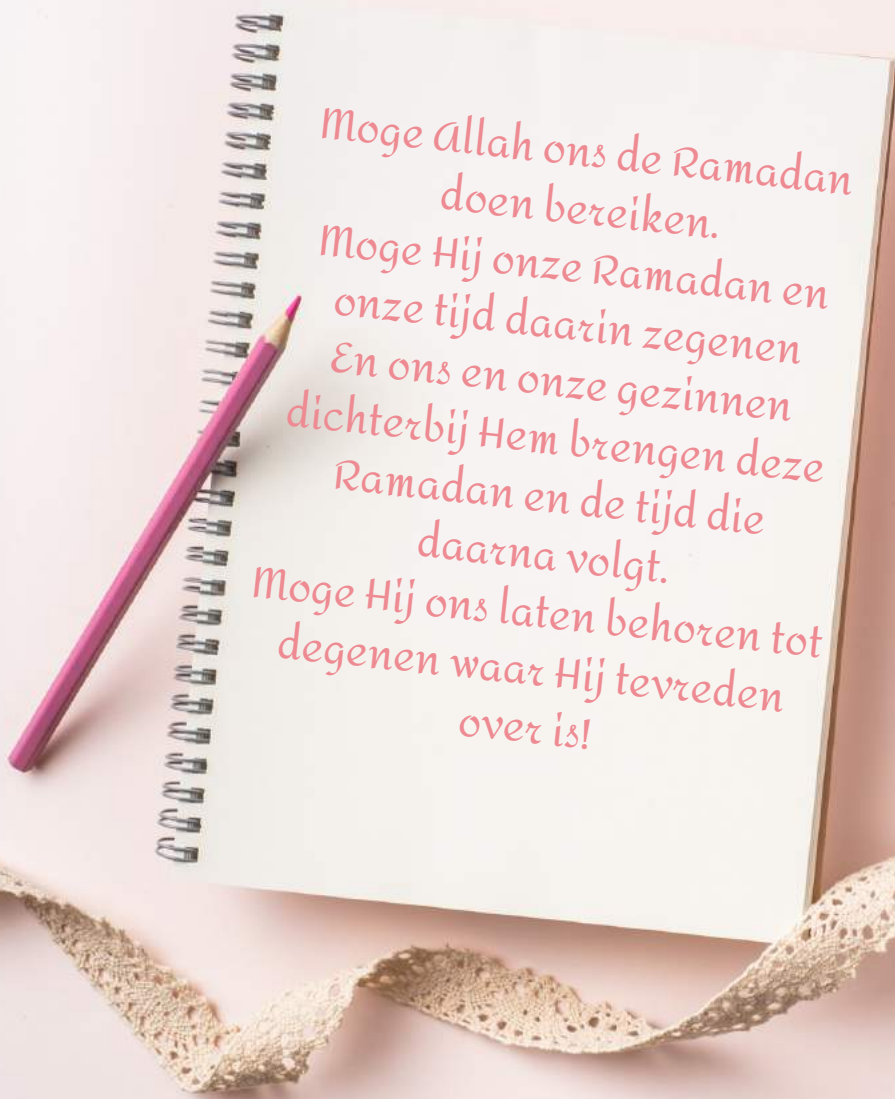 Moge Allah ons de Ramadan
doen bereiken.
Moge Hij onze Ramadan en
onze tijd daarin zegenen
En ons en onze gezinnen
dichterbij Hem brengen deze
Ramadan en de tijd die
daarna volgt.
Moge Hij ons laten behoren tot
degenen waar Hij tevreden
over is!